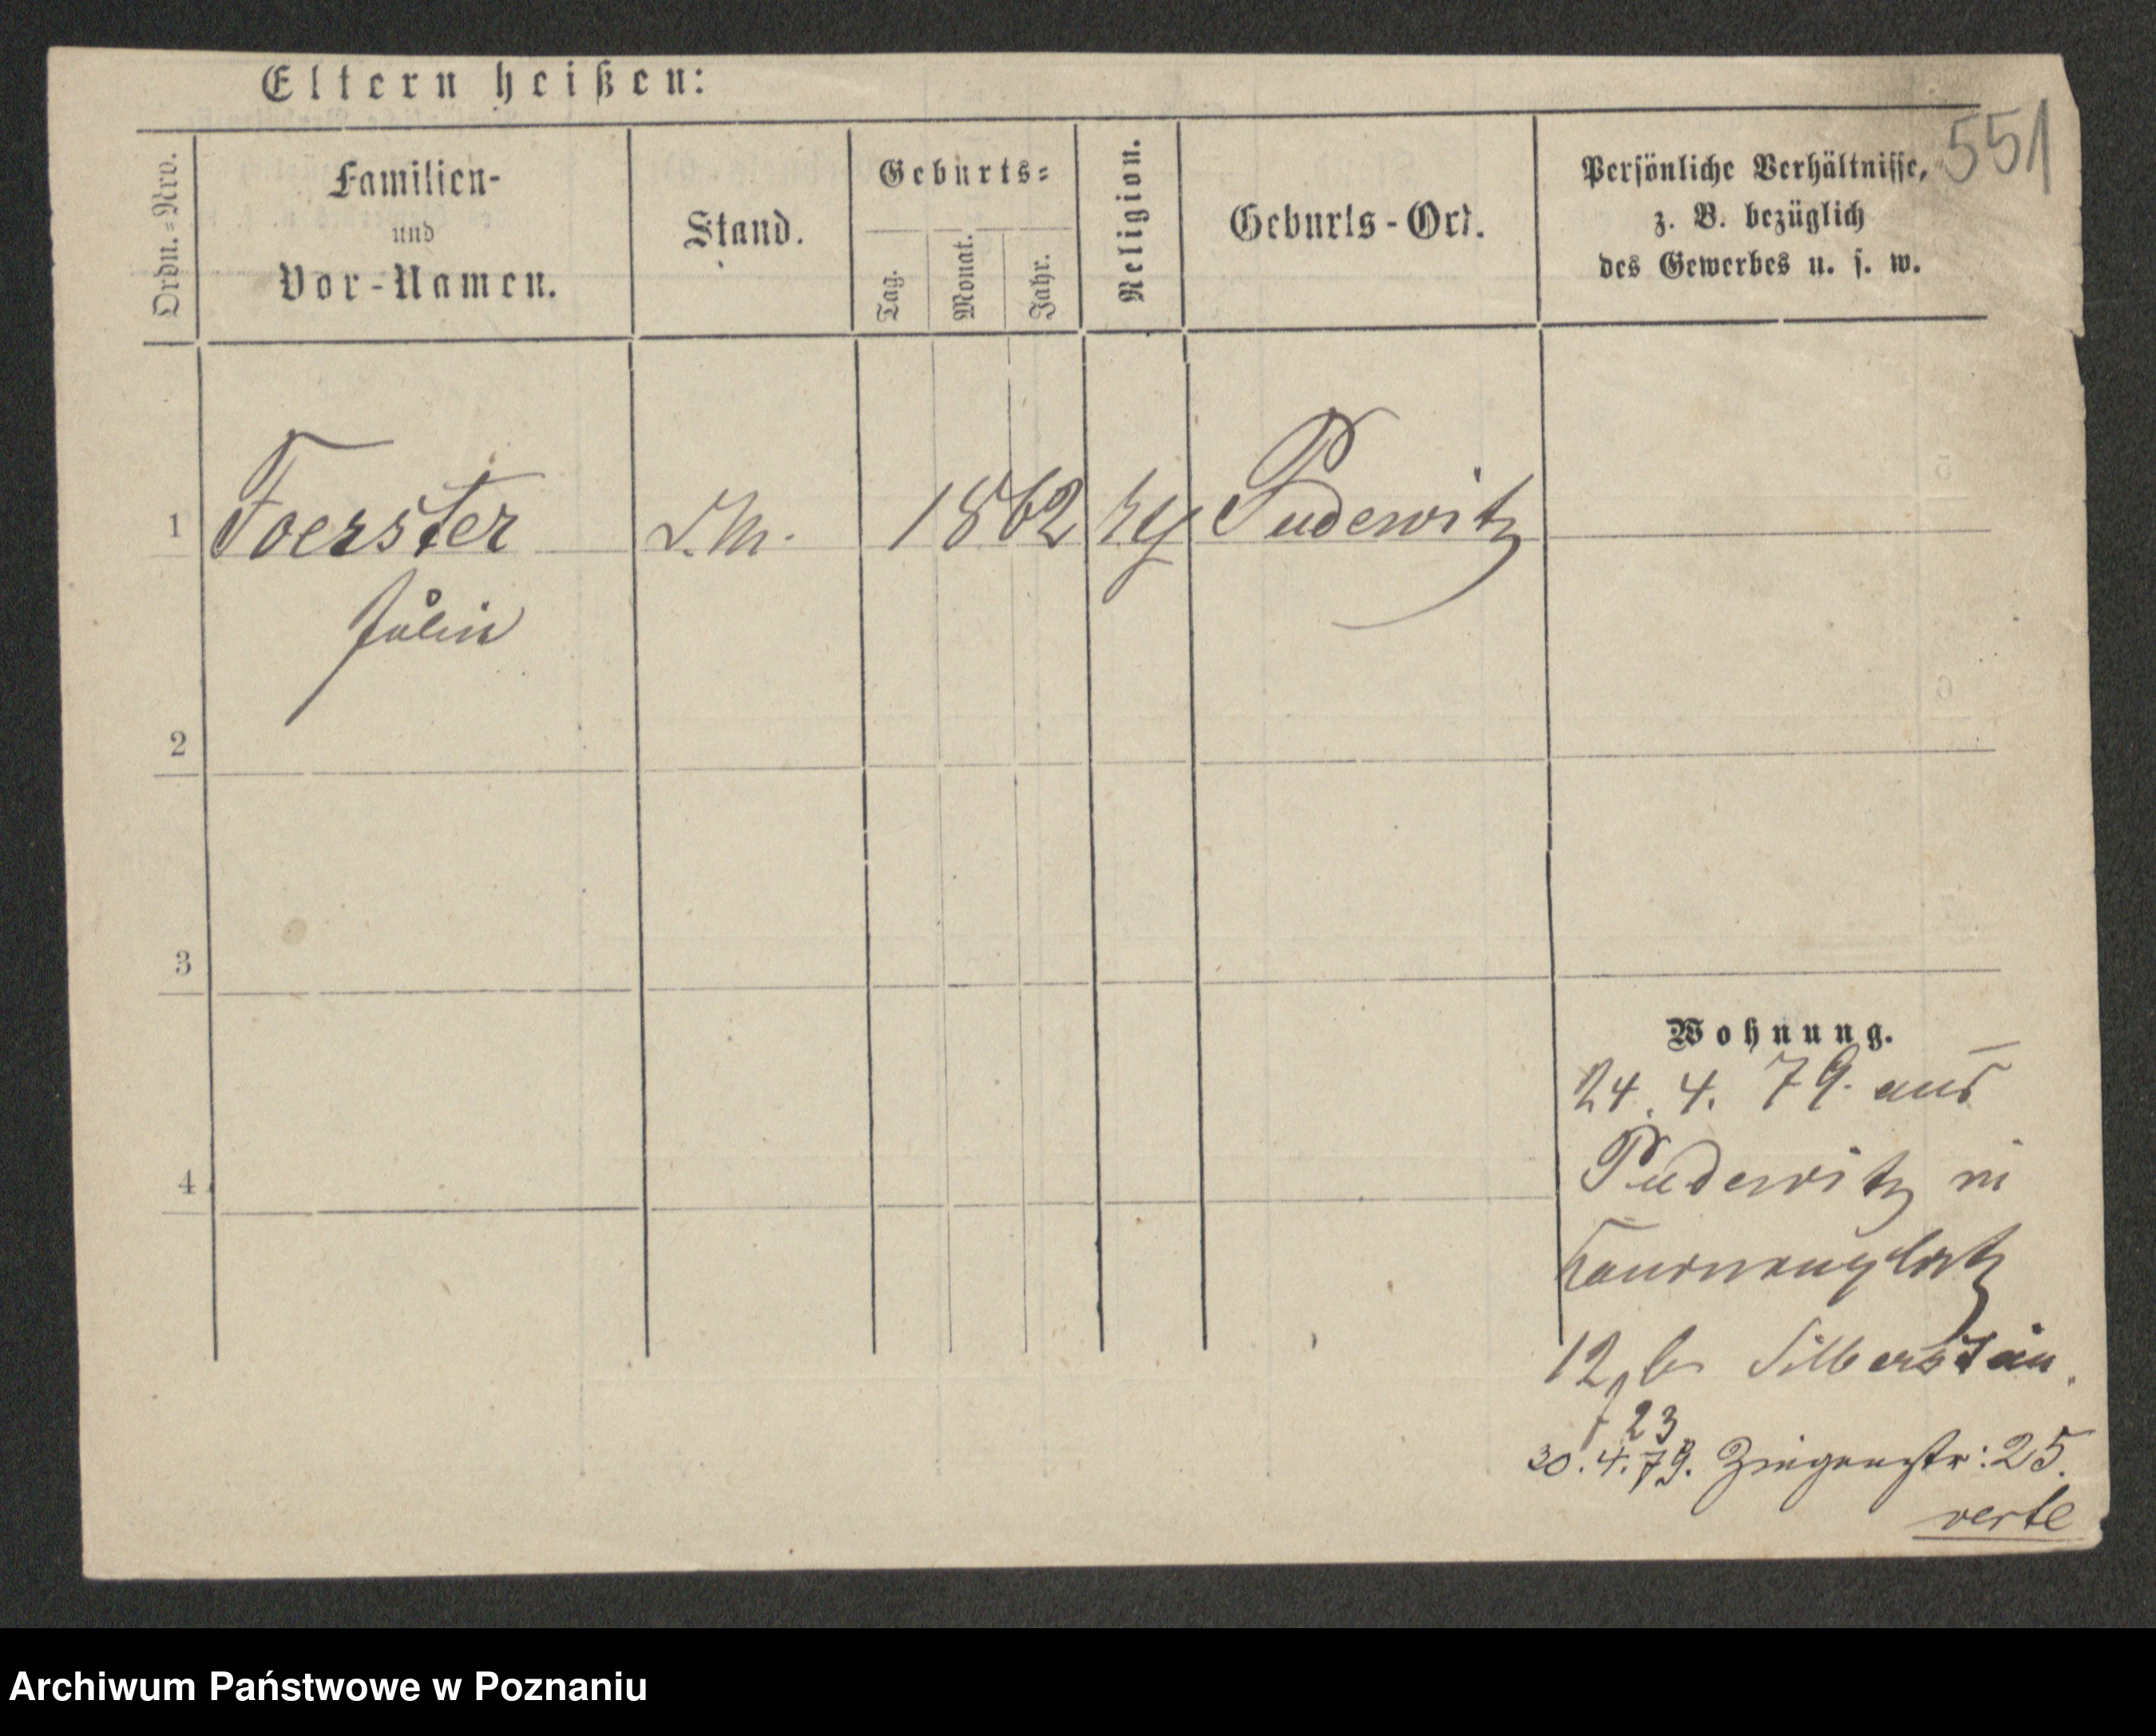 Eltern heißen:
551
Ordn.=Nro.
Familien-
und
Vor-Namen.
Stand.
Geburts=
Tag.
Monat.
Jahr.
Religion.
Geburts-Ort.
Persönliche Verhältnisse,
z. B. bezüglich
des Gewerbes u. s. w.
1 Foerster 1862 Pudewitz
2
3
4
Wohnung.
24. 4. 79. aus
Pudewitz in
12 b Silberstein.
23
30. 4. 79. Ziegenstr: 25.
verte
Archiwum Państwowe w Poznaniu